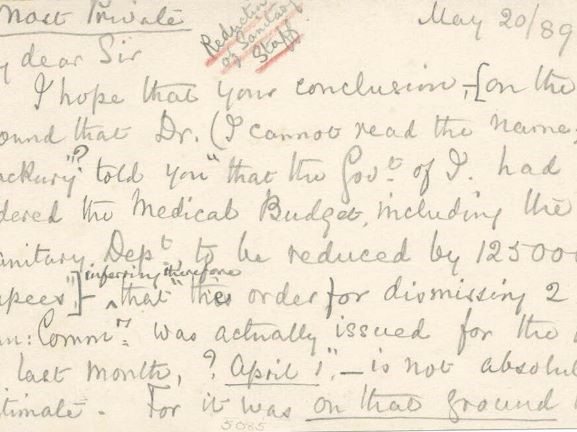 Most Private
May 20/89
Reduction
of Sanitary
Staff
y dear Sir
I hope that your conclusion, -[on the
ound that Dr. (I cannot read the name,
ackury"? told you" that the Govt. of I. had
dered the Medical Budget, including the
nitary Dept. to be reduced by 125000
upees"]- inferring therefore
that "the order for dismissing 2
n: Commrs. was actually issued for the
last month, ? April 1", - is not absolu
timate. For it was on that ground
5085